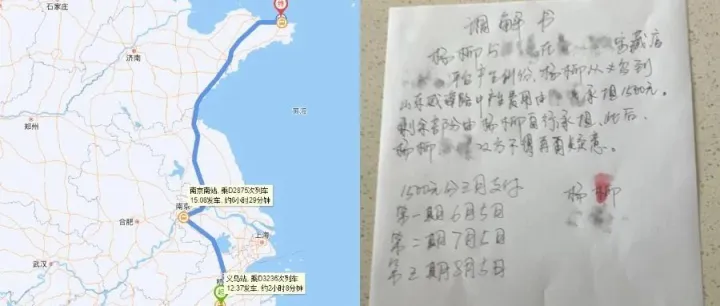 石家庄
济南
郑州
黄海
南京南站, 乘D2875次列车
15:08发车, 约6小时29分钟
南京
合肥
上海
武汉
义乌站, 乘D3236次列车
12:37发车, 约2小时8分钟
终
调解书
杨柳与
在
店
平台产生纠份,杨柳从义乌到
山东威海路中产生费用由
承担1500元。
剩余部分由杨柳自行承担,此后,
杨柳
双方不得再有疑意。
1500元分三月支付
杨柳
第一期6月5日
第二期7月5日
第三期8月5日